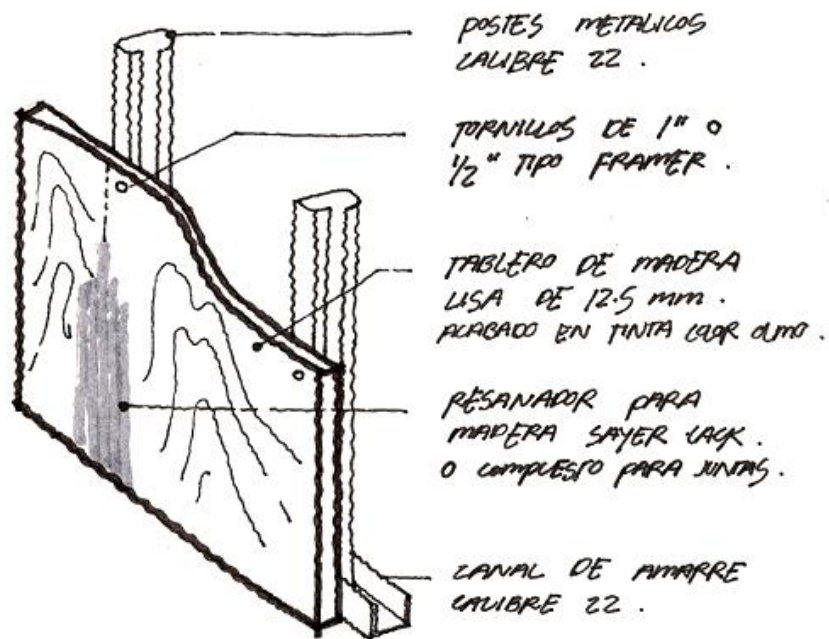 POSTES METALICOS
CALIBRE 22 .
TORNILLOS DE 1" O
1/2" TIPO FRAMER .
TABLERO DE MADERA
LISA DE 12.5 mm .
ACABADO EN TINTA COLOR OLMO .
RESANADOR PARA
MADERA SAYER LACK .
O COMPUESTO PARA JUNTAS .
CANAL DE AMARRE
CALIBRE 22 .